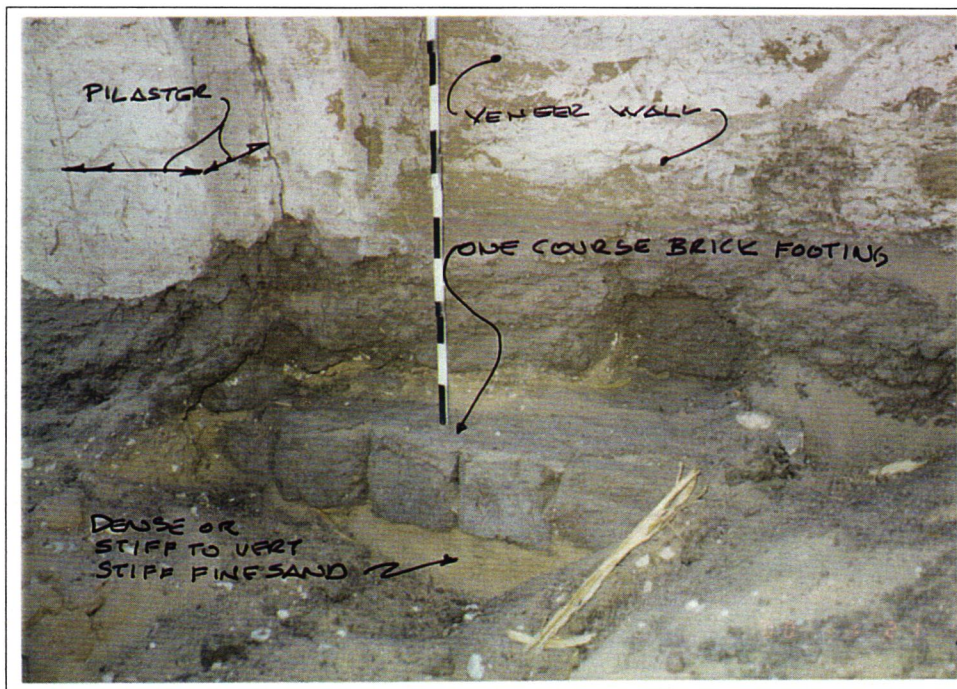 PILASTER
VENEER WALL
ONE COURSE BRICK FOOTING
DENSE OR
STIFF TO VERY
STIFF FINE SAND